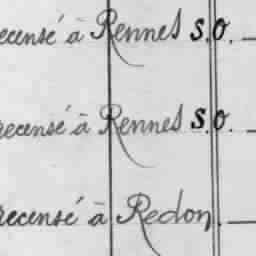 recensé à Rennes S.O. _
recensé à Rennes S.O. _
recensé à Redon. _